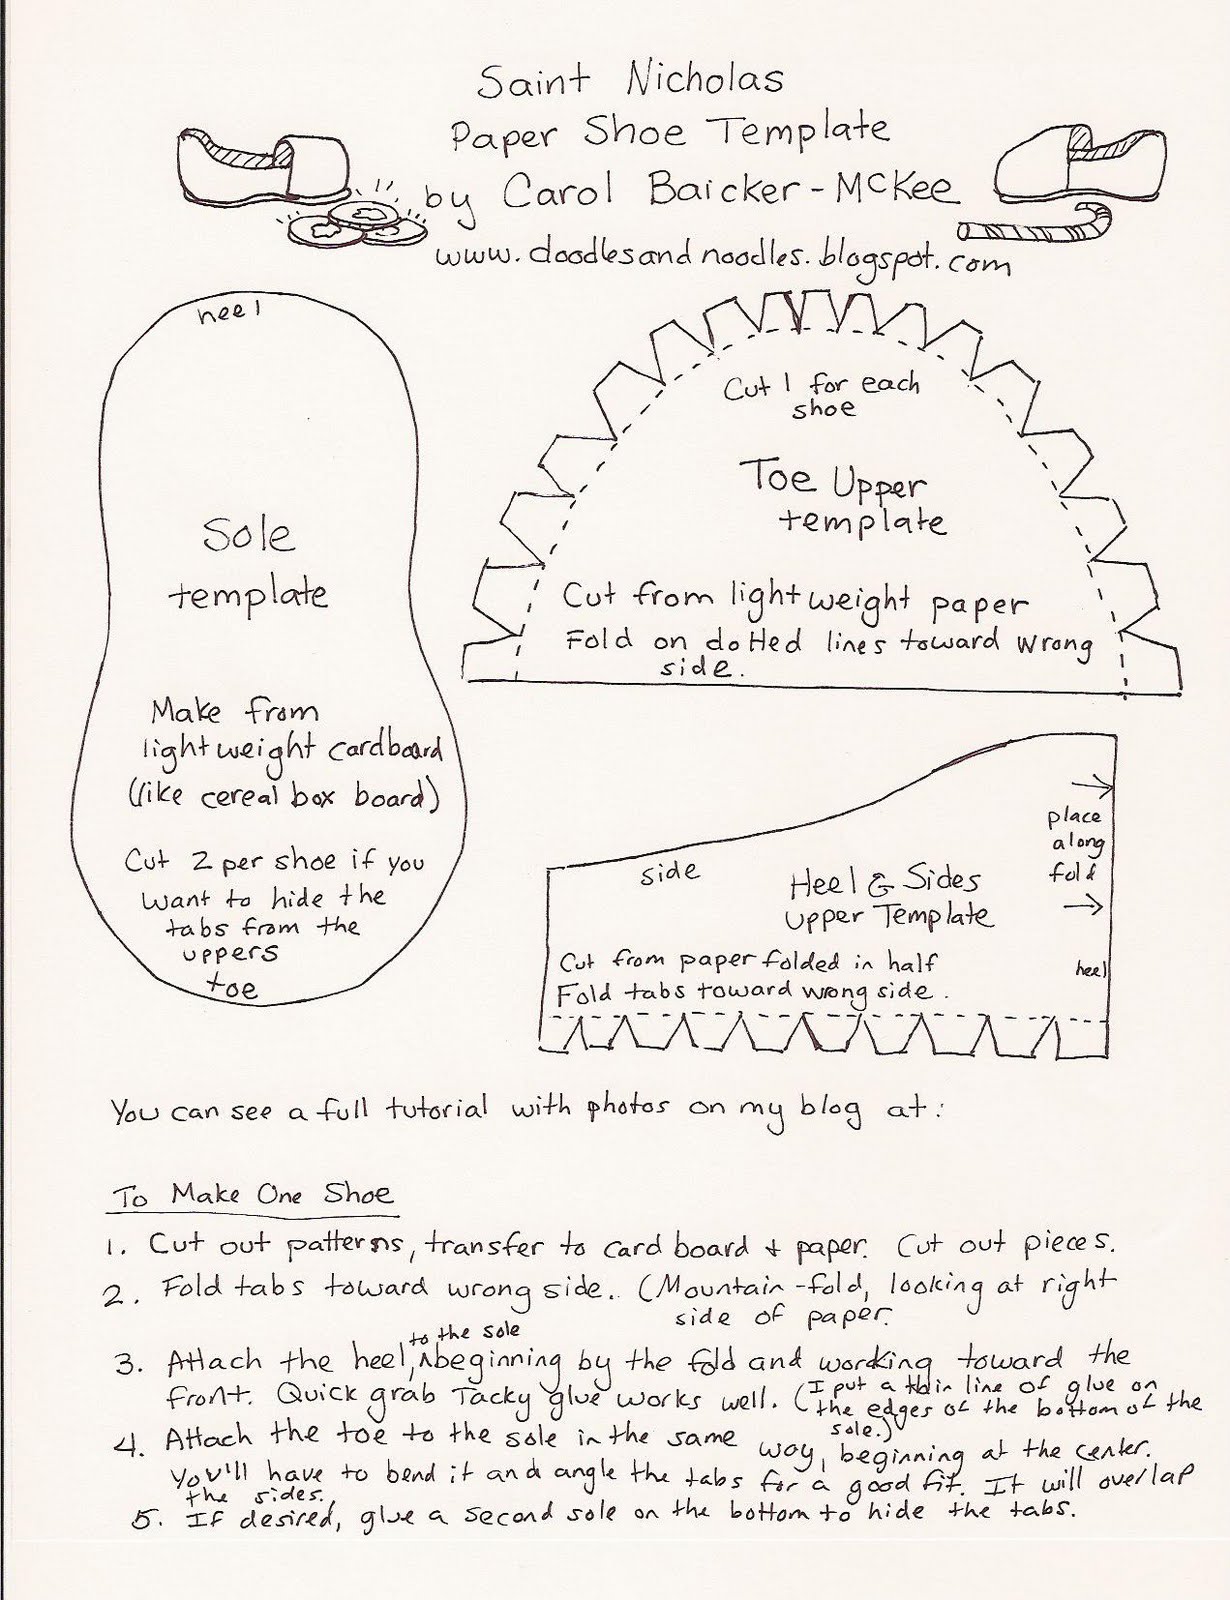 Saint Nicholas
Paper Shoe Template
by Carol Baicker-McKee
www.doodlesandnoodles.blogspot.com
heel
Sole
template
Make from
lightweight cardboard
(like cereal box board)
Cut 2 per shoe if you
want to hide the
tabs from the
uppers
toe
Cut 1 for each
shoe
Toe Upper
template
Cut from lightweight paper
Fold on dotted lines toward wrong
side.
side
Heel & Sides
upper Template
place
along
fold
heel
Cut from paper folded in half
Fold tabs toward wrong side.
You can see a full tutorial with photos on my blog at:
To Make One Shoe
1. Cut out patterns, transfer to cardboard + paper. Cut out pieces.
2. Fold tabs toward wrong side. (Mountain-fold, looking at right
side of paper.
3. Attach the heel, to the sole beginning by the fold and working toward the
front. Quick grab Tacky glue works well. (I put a thin line of glue on
the edges of the bottom of the
sole.)
4. Attach the toe to the sole in the same way, beginning at the center.
You'll have to bend it and angle the tabs for a good fit. It will overlap
the sides.
5. If desired, glue a second sole on the bottom to hide the tabs.